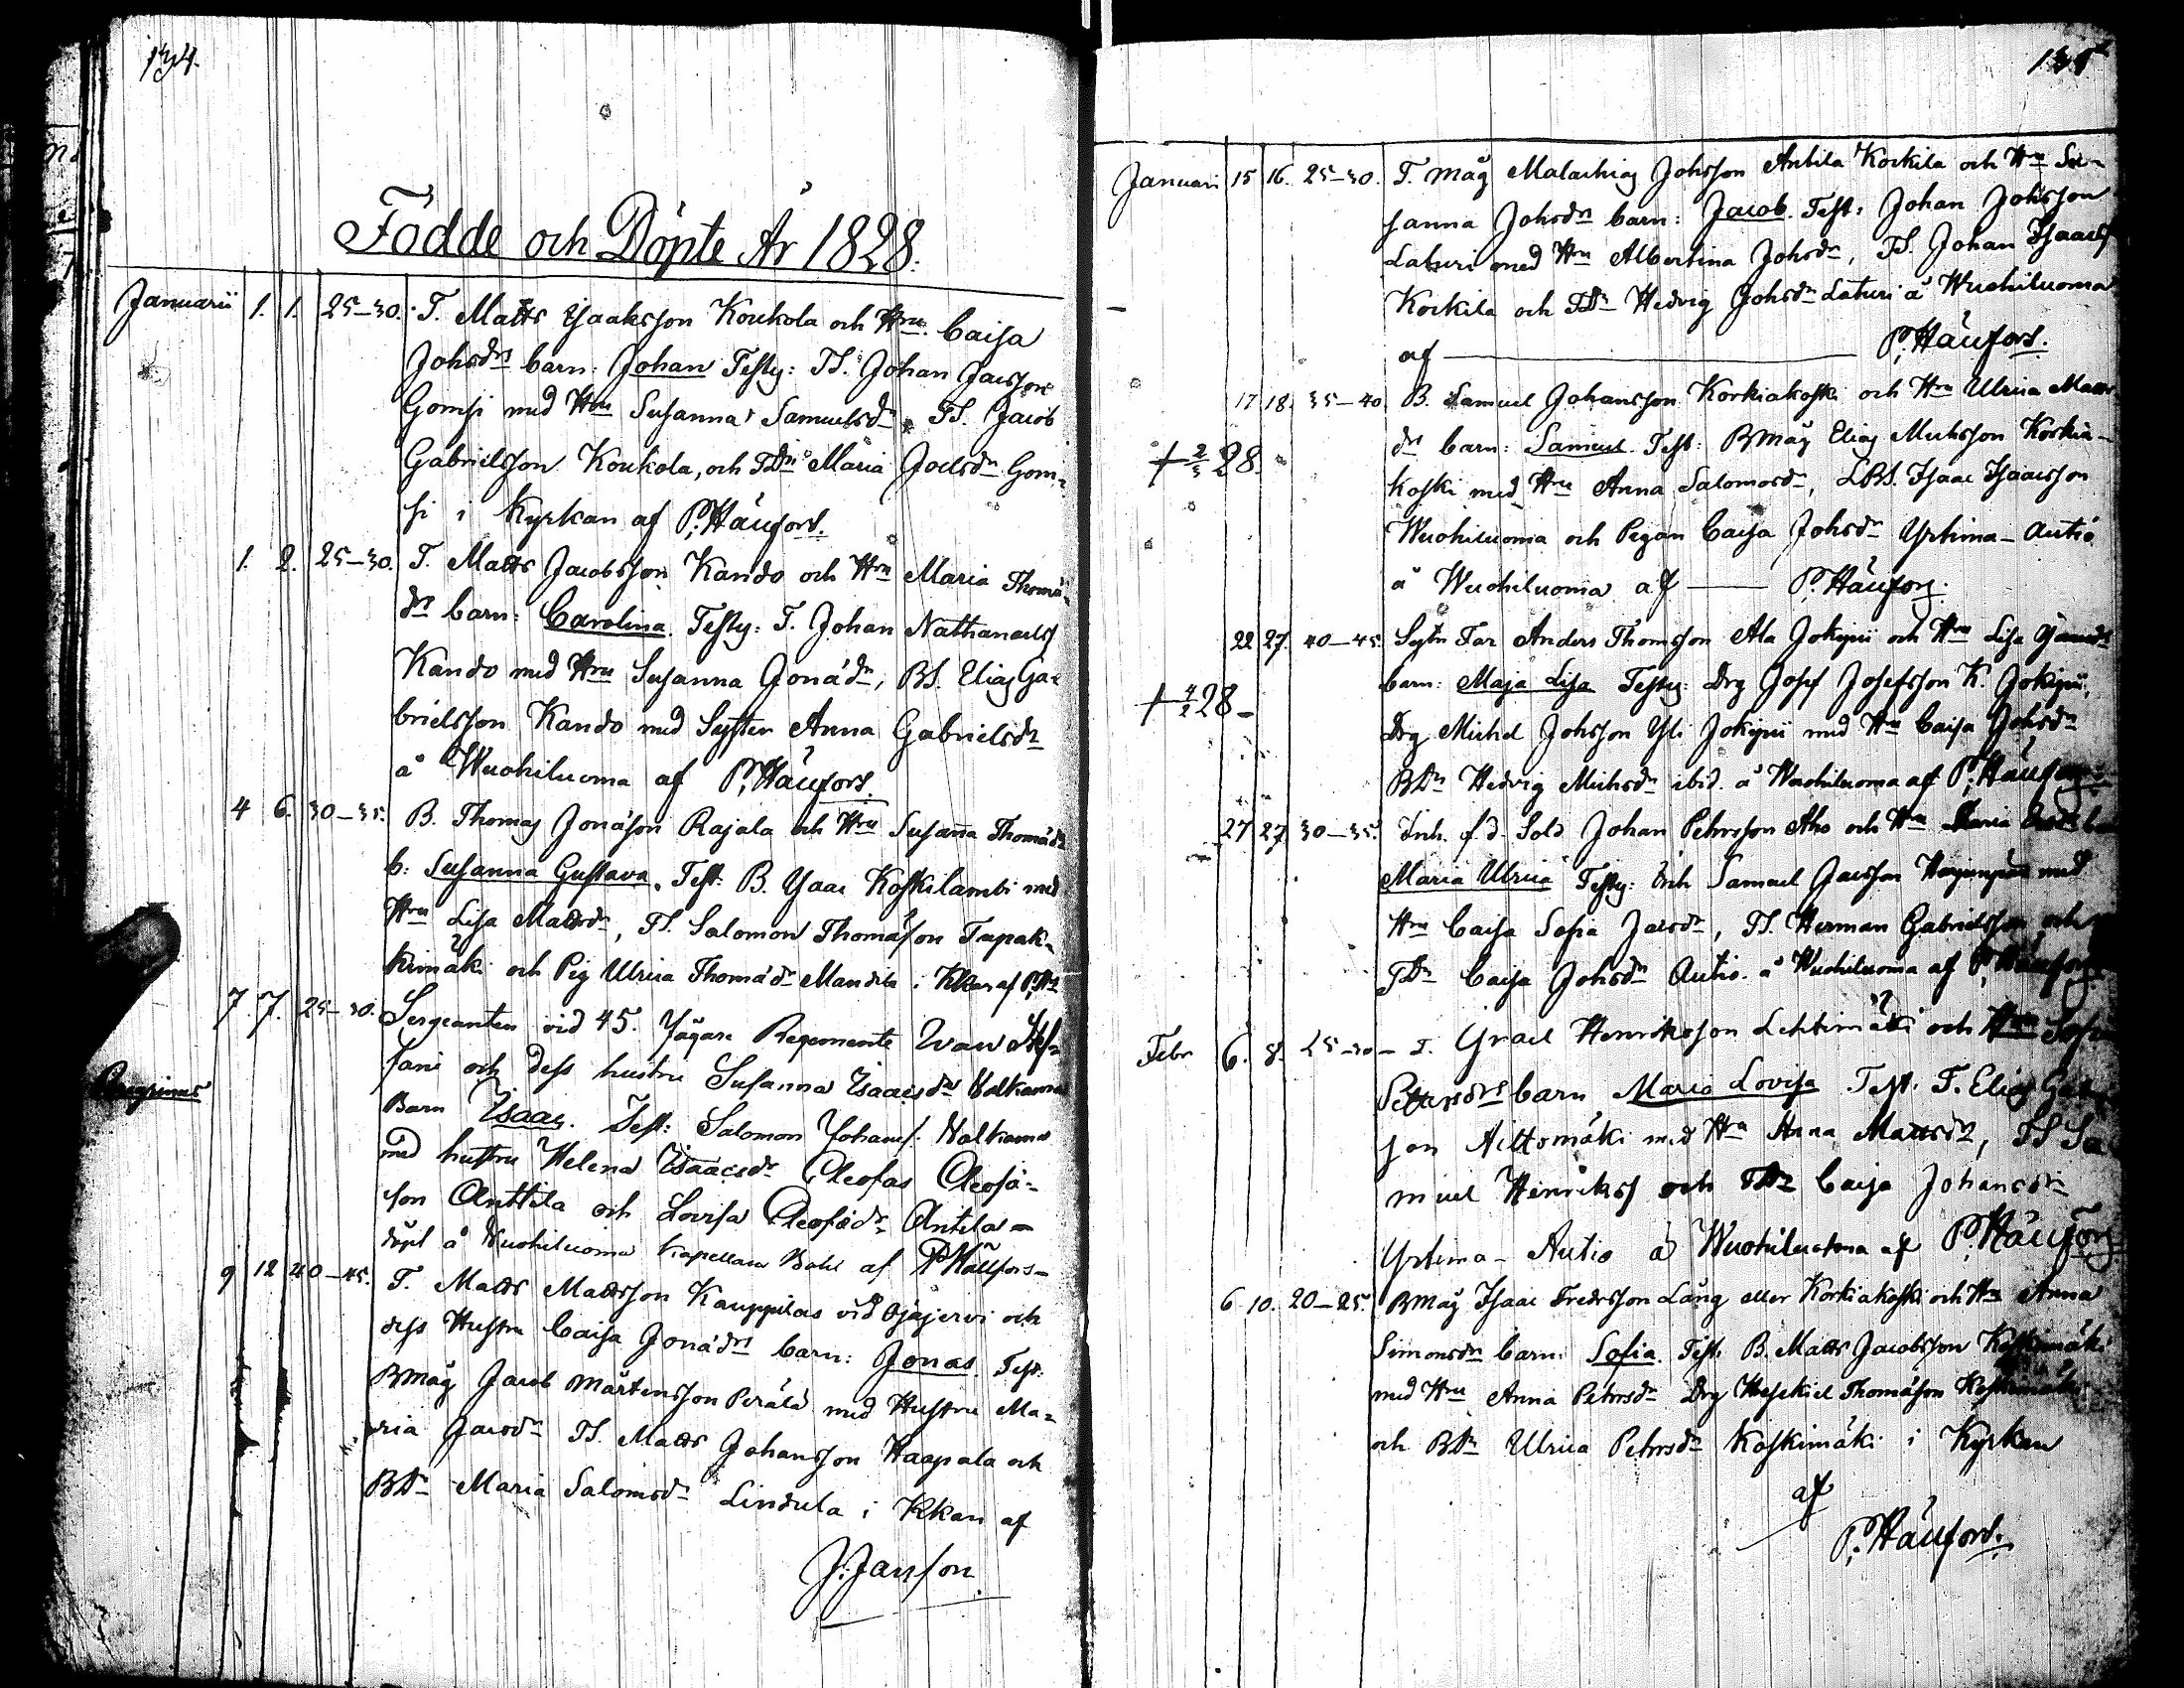 134.
Födde och Döpte År 1828.
Januarii 1. 1. 25–30. T. Matts Isaaksson Koukola och Hru. Caisa
Johsdrs barn: Johan Testg: TS. Johan Jacsson
Gomsi med Hru Susanna Samuelsdr TS. Jacob
Gabrielsson Koukola, och TDr Maria Joelsdr Gom-
si i Kyrkan af P. Häufors.
1. 2. 25–30. T. Matts Jacobsson Kando och Hru Maria Thomæ
drs barn: Carolina. Testg: T. Johan Nathanaels
Kando med Hru Susanna Jonædr, BS. Elias Ga-
brielsson Kando med Syster Anna Gabrielsdr
å Wuohiluoma af P. Häufors.
4 6. 30–35. B. Thomas Jonæson Rajala och Hru Susanna Thomædr
b: Susanna Gustava. Test: B. Isaac Koskilambi med
Hru Lisa Mattsdr, TS. Salomon Thomæson Tupak-
kimäki och Pig Ulrica Thomædr Mandila i Kkan af P. H
7. 7. 25–30. Sergeanten vid 45. Jägare Regemente Iwan Stef-
fani och dess hustru Susanna Isaacsdr Valkama
Peregrinus
Barn Isaac. Test: Salomon Johans. Valkama
med hustru Helena Isaacsdr Cleofas Cleofæ-
son Anttila och Lovisa Cleofædr Antila
döpt å Wuohiluoma Kapellans Bohl af P Hällfors
9 12 40–45. T. Matts Mattsson Kauppilas vid Ojajervi och
dess Hustru Caisa Jonædrs barn: Jonas. Test:
BMåg Jacob Mårtensson Perälä med Hustru Ma-
ria Jacsdr TS. Matts Johansson Haapala och
BDr Maria Salomsdr Lindula i Kkan af
J. Janson.
135
Januari 15 16. 25–30. T. Måg Malachias Johsson Antila Korkila och Hru Su-
sanna Johsdrs barn: Jacob. Test: Johan Johsson
Laturi med Hru Albertina Johsdr, TS. Johan Isaacs
Korkila och TDr Hedvig Johsdr Laturi å Wuohiluoma
af P. Häufors.
17 18. 35–40. B. Samuel Johansson Korkiakoski och Hru Ulrica Matts
drs barn: Samuel. Test: BMåg Elias Michsson Korkia-
† 2/3 28.
koski med Hru Anna Salomosdr, LBS. Isaac Isaacsson
Wuohiluoma och Pigan Caisa Johsdr Yrtima-Autio
å Wuohiluoma af P. Häufors.
22 27. 40–45. Sytn Far Anders Thomsson Ala Jokipii och Hru Lisa
barn: Maja Lisa Testg: Drg Josef Josefsson K. Jokipii,
† 4/2 28
Drg Michel Johsson Yli Jokipii med Hru Caisa Johsdr
BDr Hedvig Michsdr ibid. å Wuohiluoma af P. Häufors
27 27 30–35. Inh. f.d. Sold Johan Pehrsson Aho och Hru Maria
Maria Ulrica Testg: Inh Samuel Jacsson Harjunpää med
Hru Caisa Sofia Jacsdr, TS. Herman Gabrielsson och
TDr Caisa Johsdr Autio. å Wuohiluoma af P. Häufors
Febr 6. 8. 25–30 T. Israel Henriksson Lehtimäki och Hru
Pettersdrs barn Maria Lovisa Test: T. Elias
son Aittomäki med Hru Anna Mattsdr, TS Sa
muel Henrikss och TDr Caisa Johansdr
Yrtima-Autio å Wuohiluoma af P. Häufors
6 10. 20–25. BMåg Isaac Fredrsson Lång eller Korkiakoski och Hru Anna
Simonsdrs barn: Sofia. Test: B. Matts Jacobsson Koskimäki
med Hru Anna Pehrsdr Drg Heskiel Thomæson Koskimäki
och BDr Ulrica Pehrsdr Koskimäki i Kyrkan
af
P. Häufors.